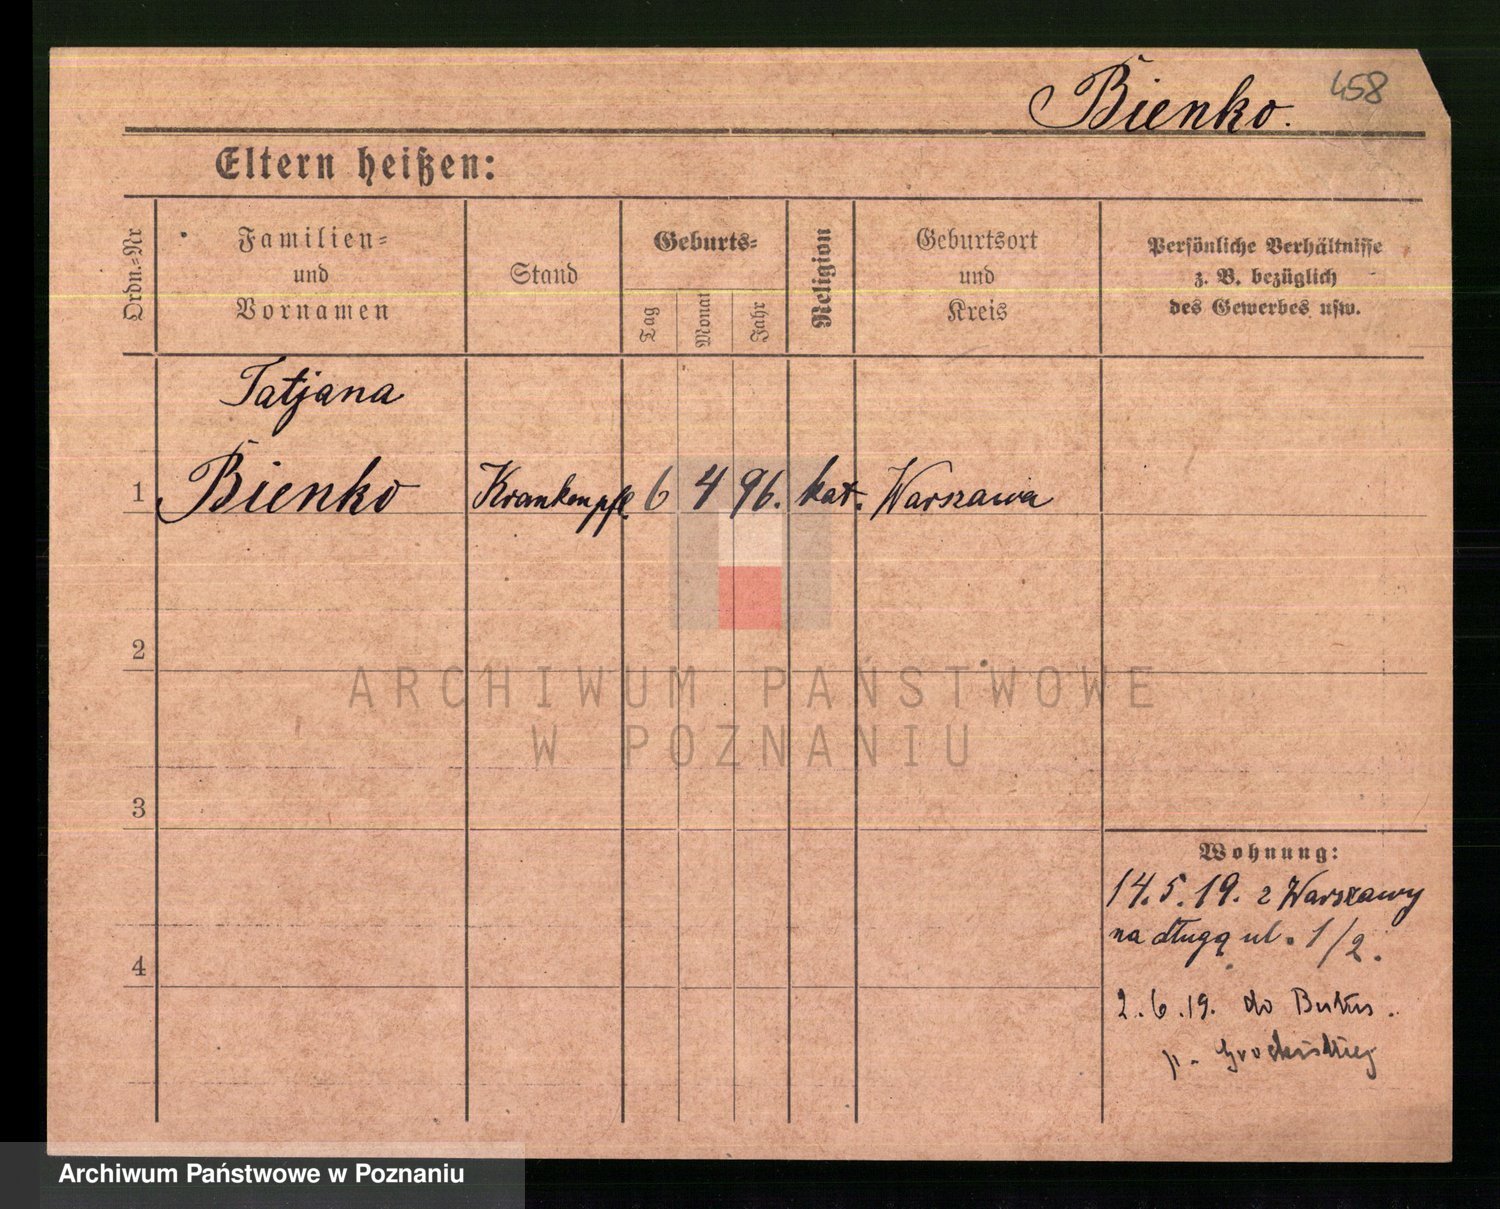 Bienko. 458
Eltern heißen:
Ordn.-Nr
Familien-
und
Vornamen
Stand
Geburts-
Tag
Monat
Jahr
Religion
Geburtsort
und
Kreis
Persönliche Verhältnisse
z. B. bezüglich
des Gewerbes usw.
Tatjana
1 Bienko Krankenpfl. 6 4 96. kat. Warszawa
2
3
4
Wohnung:
14.5.19. z Warszawy
na długą ul. 1/2.
2.6.19. do
p.
ARCHIWUM PAŃSTWOWE
W POZNANIU
Archiwum Państwowe w Poznaniu